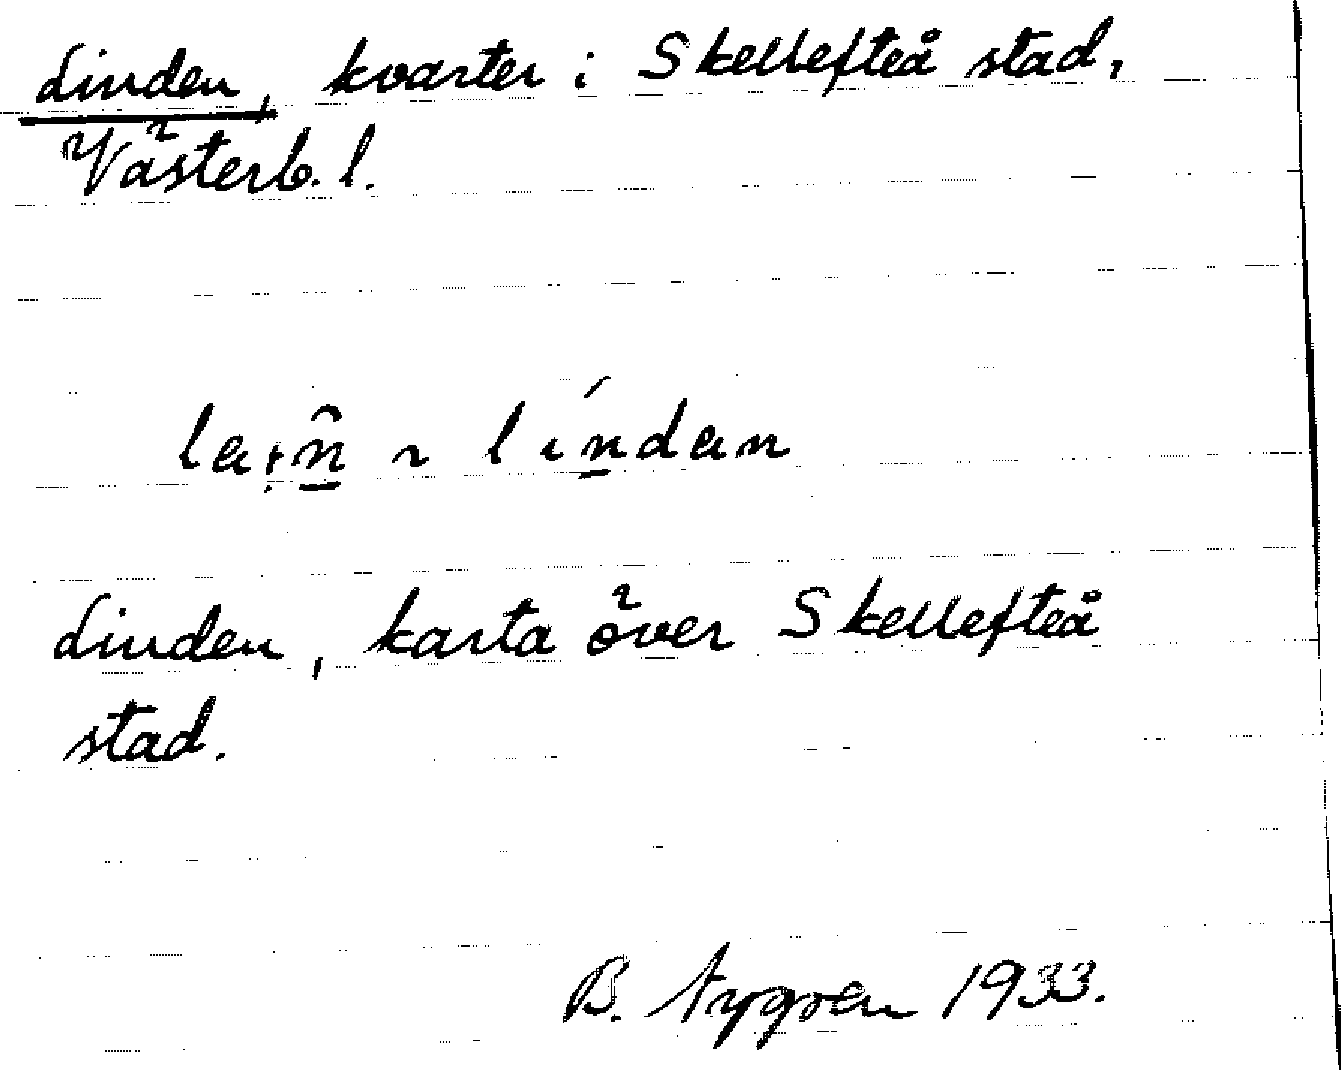 Linden, kvarter i Skellefteå stad,
Västerb. l.
líndan
Linden, karta över Skellefteå
stad.
B. Nygren 1933.